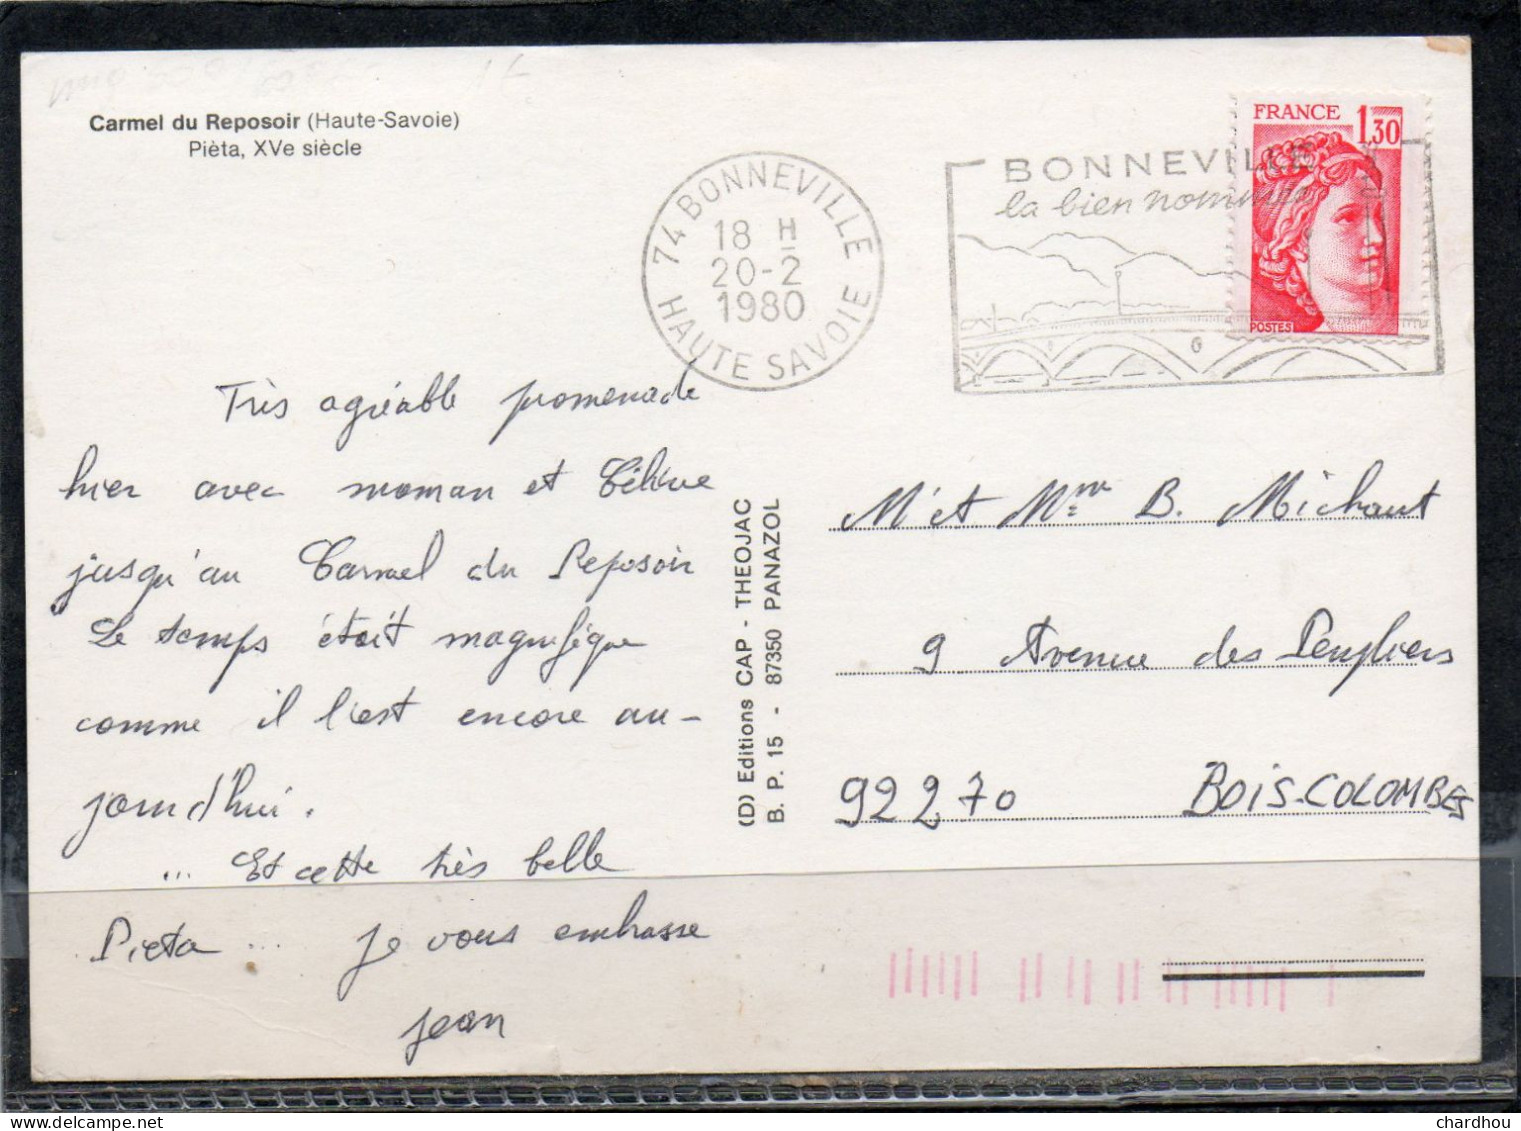 Carmel du Reposoir (Haute-Savoie)
Pièta, XVe siècle
74 BONNEVILLE
18 H
20-2
1980
HAUTE SAVOIE
BONNEVILLE
la bien nommée
FRANCE 1,30
POSTES
Très agréable promenade
hier avec maman et Céline
jusqu'au Carmel du Reposoir
Le temps était magnifique
comme il l'est encore au-
jourd'hui.
... Et cette très belle
Pieta ... Je vous embrasse
Jean
(D) Editions CAP - THEOJAC
B. P. 15 - 87350 PANAZOL
Mr et Mme B. Michaut
9 Avenue des Peupliers
92270 BOIS-COLOMBES
chardhou